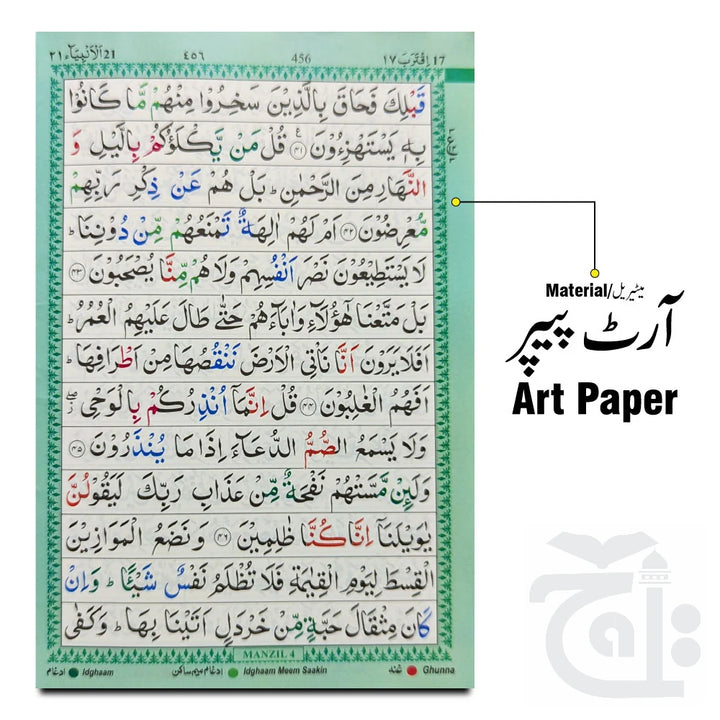 21 اَلْاَنْۢبِيَآء ٢١
٤٥٦
456
17 اِقْتَرَبَ ١٧
قَبْلِكَ فَحَاقَ بِالَّذِيْنَ سَخِرُوْا مِنْهُمْ مَّا كَانُوْا
بِهٖ يَسْتَهْزِءُوْنَ ۴۱ قُلْ مَنْ يَّكْلَؤُكُمْ بِالَّيْلِ وَ
النَّهَارِ مِنَ الرَّحْمٰنِ ؕ بَلْ هُمْ عَنْ ذِكْرِ رَبِّهِمْ
مُّعْرِضُوْنَ ۴۲ اَمْ لَهُمْ اٰلِهَةٌ تَمْنَعُهُمْ مِّنْ دُوْنِنَا ؕ
لَا يَسْتَطِيْعُوْنَ نَصْرَ اَنْفُسِهِمْ وَلَا هُمْ مِّنَّا يُصْحَبُوْنَ ۴۳
بَلْ مَتَّعْنَا هٰٓؤُلَآءِ وَاٰبَآءَهُمْ حَتّٰى طَالَ عَلَيْهِمُ الْعُمُرُ ؕ
اَفَلَا يَرَوْنَ اَنَّا نَاْتِى الْاَرْضَ نَنْقُصُهَا مِنْ اَطْرَافِهَا ؕ
اَفَهُمُ الْغٰلِبُوْنَ ۴۴ قُلْ اِنَّمَآ اُنْذِرُكُمْ بِالْوَحْىِ ۖ ز
وَلَا يَسْمَعُ الصُّمُّ الدُّعَآءَ اِذَا مَا يُنْذَرُوْنَ ۴۵
وَلَئِنْ مَّسَّتْهُمْ نَفْحَةٌ مِّنْ عَذَابِ رَبِّكَ لَيَقُوْلُنَّ
يٰوَيْلَنَآ اِنَّا كُنَّا ظٰلِمِيْنَ ۴۶ وَنَضَعُ الْمَوَازِيْنَ
الْقِسْطَ لِيَوْمِ الْقِيٰمَةِ فَلَا تُظْلَمُ نَفْسٌ شَيْـًٔا ؕ وَاِنْ
كَانَ مِثْقَالَ حَبَّةٍ مِّنْ خَرْدَلٍ اَتَيْنَا بِهَا ؕ وَكَفٰى
MANZIL 4
ادغام Idghaam
ادغام میم ساکن Idghaam Meem Saakin
غنہ Ghunna
Material/میٹیریل
آرٹ پیپر
Art Paper